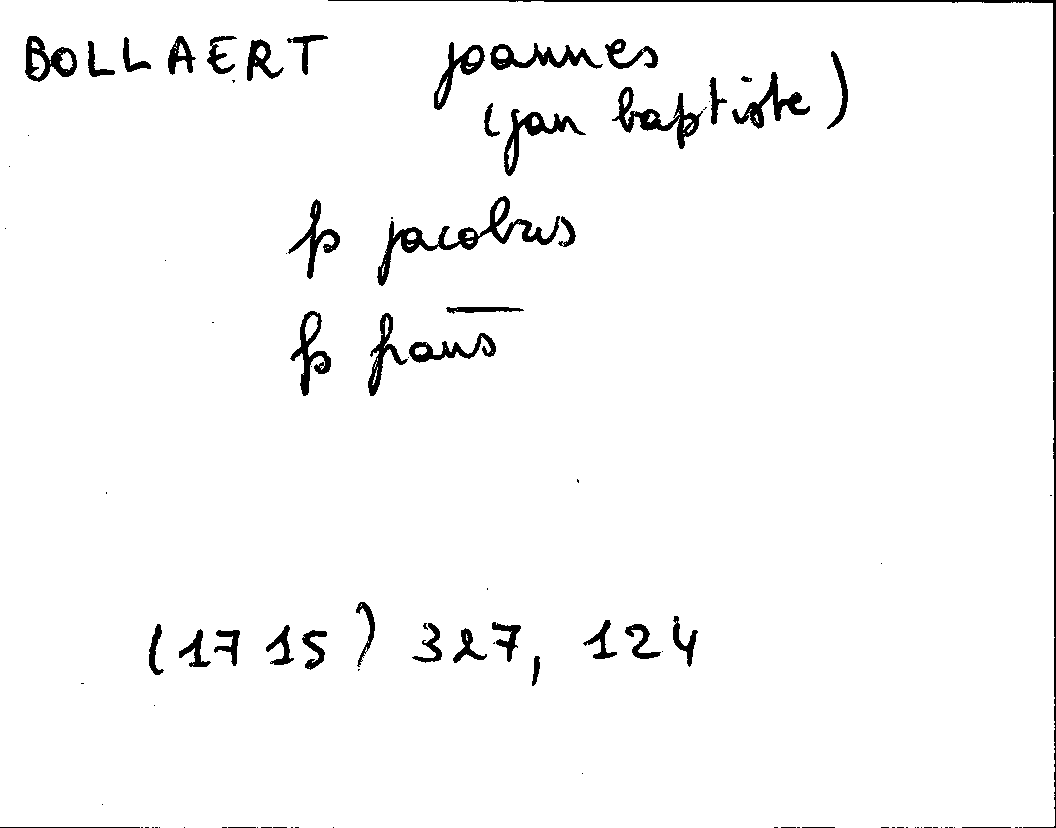 BOLLAERT joannes
(jan baptiste)
p jacobus
p frans
(1715) 327, 124